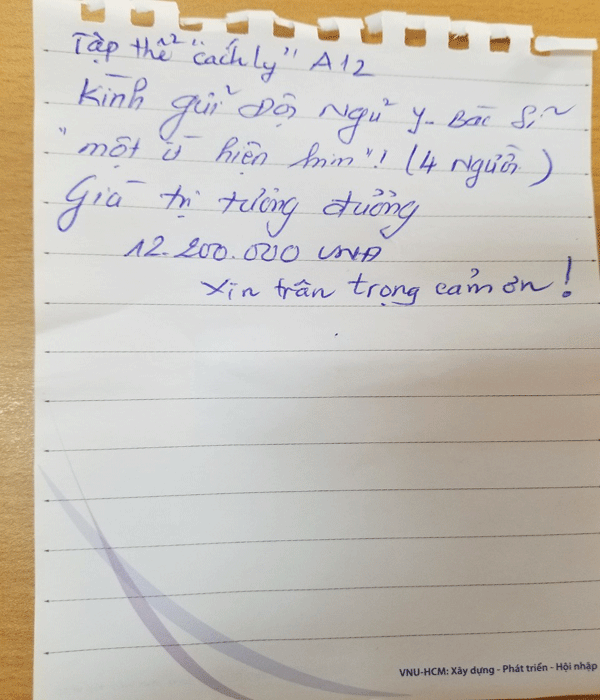 Tập thể "cách ly" A12
Kính gửi Đội Ngũ y - Bác Sĩ
"một ít hiện kim"! (4 người)
Giá trị tương đương
12.200.000 VNĐ
Xin trân trọng cảm ơn!
VNU-HCM: Xây dựng - Phát triển - Hội nhập